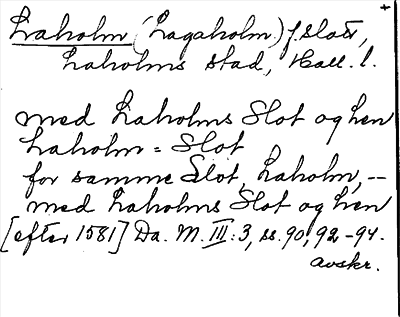 Laholm (Lagaholm) f. slott, +
Laholms stad, Hall. l.
med Laholms Slot og Len
Laholm = Slot
for samme Slot, Laholm, --
med Laholms Slot og Len
[efter 1581] Da. M. III: 3, ss. 90, 92-94.
avskr.